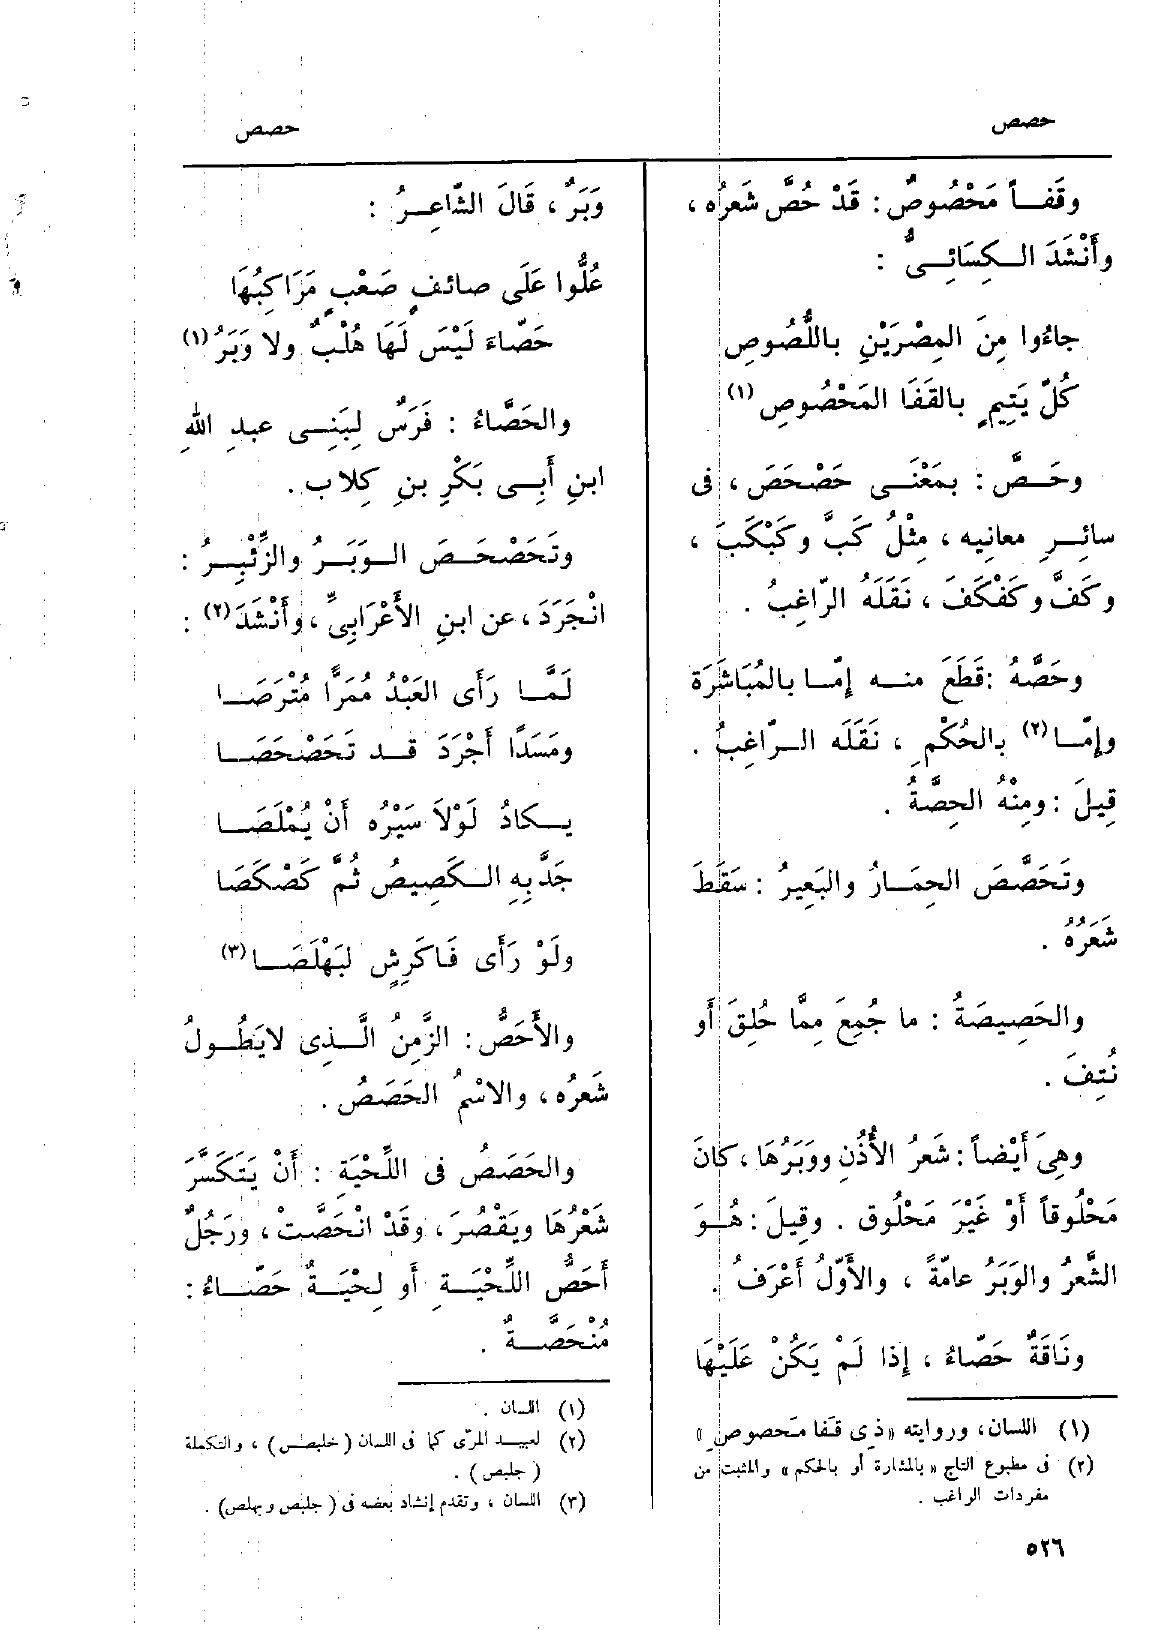 حصص
حصص
وقَفــاً مَحْصُوصٌ : قَدْ حُصَّ شَعرُه ،
وأَنْشَدَ الـكِسَائِـىُّ :
جاءُوا مِنَ المِصْرَيْنِ باللُّصُوصِ
كُلَّ يَتِيمٍ بالقَفَا المَحْصُوصِ (١)
وحَــصَّ : بمَعْنَــى حَصْحَصَ ، فى
سائِــرِ معانِيه ، مِثْلُ كَبَّ وكَبْكَبَ ،
وكَفَّ وكَفْكَفَ ، نَقَلَهُ الرّاغِبُ .
وحَصَّهُ : قَطَعَ منــه إمّــا بالمُبَاشَرَة
وإمّــا (٢) بالحُكْمِ ، نَقَلَه الــرّاغِبُ .
قِيلَ : ومِنْهُ الحِصَّةُ .
وتَحَصَّصَ الحِمَــارُ والبَعِيرُ : سَقَطَ
شَعَرُهُ .
والحَصِيصَةُ : ما جُمِعَ مِمَّا حُلِقَ أَو
نُتِفَ .
وهِىَ أَيْضاً : شَعرُ الأُذُنِ ووَبَرُهَا ، كانَ
مَحْلُوقاً أَوْ غَيْرَ مَحْلُوق . وقِيلَ : هُــوَ
الشَّعرُ والوَبَرُ عامّةً ، والأَوّلُ أَعْرَفُ .
ونَاقَةٌ حَصّاءُ ، إِذا لَمْ يَكُنْ عَلَيْهَا
(١) اللسان، وروايته «ذى قفا محصوص»
(٢) فى مطبوع التاج «بالمشارة أو بالحكم» والمثبت من
مفردات الراغب .
وَبَرٌ ، قَالَ الشّاعِــرُ :
عُلُّوا عَلَى صائفٍ صَعْبٍ مَرَاكِبُهَا
حَصّاءَ لَيْسَ لَهَا هُلْبٌ ولا وَبَرُ (١)
والحَصَّاءُ : فَرَسٌ لِبَنِــى عبدِ اللهِ
ابنِ أَبِــى بَكْرِ بنِ كِلاب .
وتَحَصْحَــصَ الــوَبَــرُ والزِّئْبِــرُ :
انْجَرَدَ ، عن ابنِ الأَعْرَابِىِّ ، وأَنْشَدَ (٢) :
لَمَّــا رَأَى العَبْدُ مُمَرًّا مُتْرَصَــا
ومَسَدًا أُجْرَدَ قــد تَحَصْحَصَــا
يــكادُ لَوْلاَ سَيْرُه أَنْ يُمْلَصَــا
جَدَّ بِهِ الــكَصِيصُ ثُمَّ كَصْكَصَا
ولَوْ رَأَى فَاكَرِشٍ لبَهْلَصَــا (٣)
والأَحَصُّ : الزَّمِنُ الَّــذِى لايَطُــولُ
شَعرُه ، والاسْمُ الحَصَصُ .
والحَصَصُ فى اللِّحْيَةِ : أَنْ يَتَكَسَّرَ
شَعْرُهَا ويَقْصُرَ ، وقَدْ انْحَصَّتْ ، ورَجُلٌ
أَحَصُّ اللِّحْيَــةِ أَو لِحْيَــةٌ حَصّــاءُ :
مُنْحَصَّــةٌ .
(١) اللسان .
(٢) لعبيد المرّى كما فى اللسان (خلبص) ، والتكملة
(جلبص) .
(٣) اللسان ، وتقدم إنشاد بعضه فى (جلبص وبهلص) .
٥٢٦